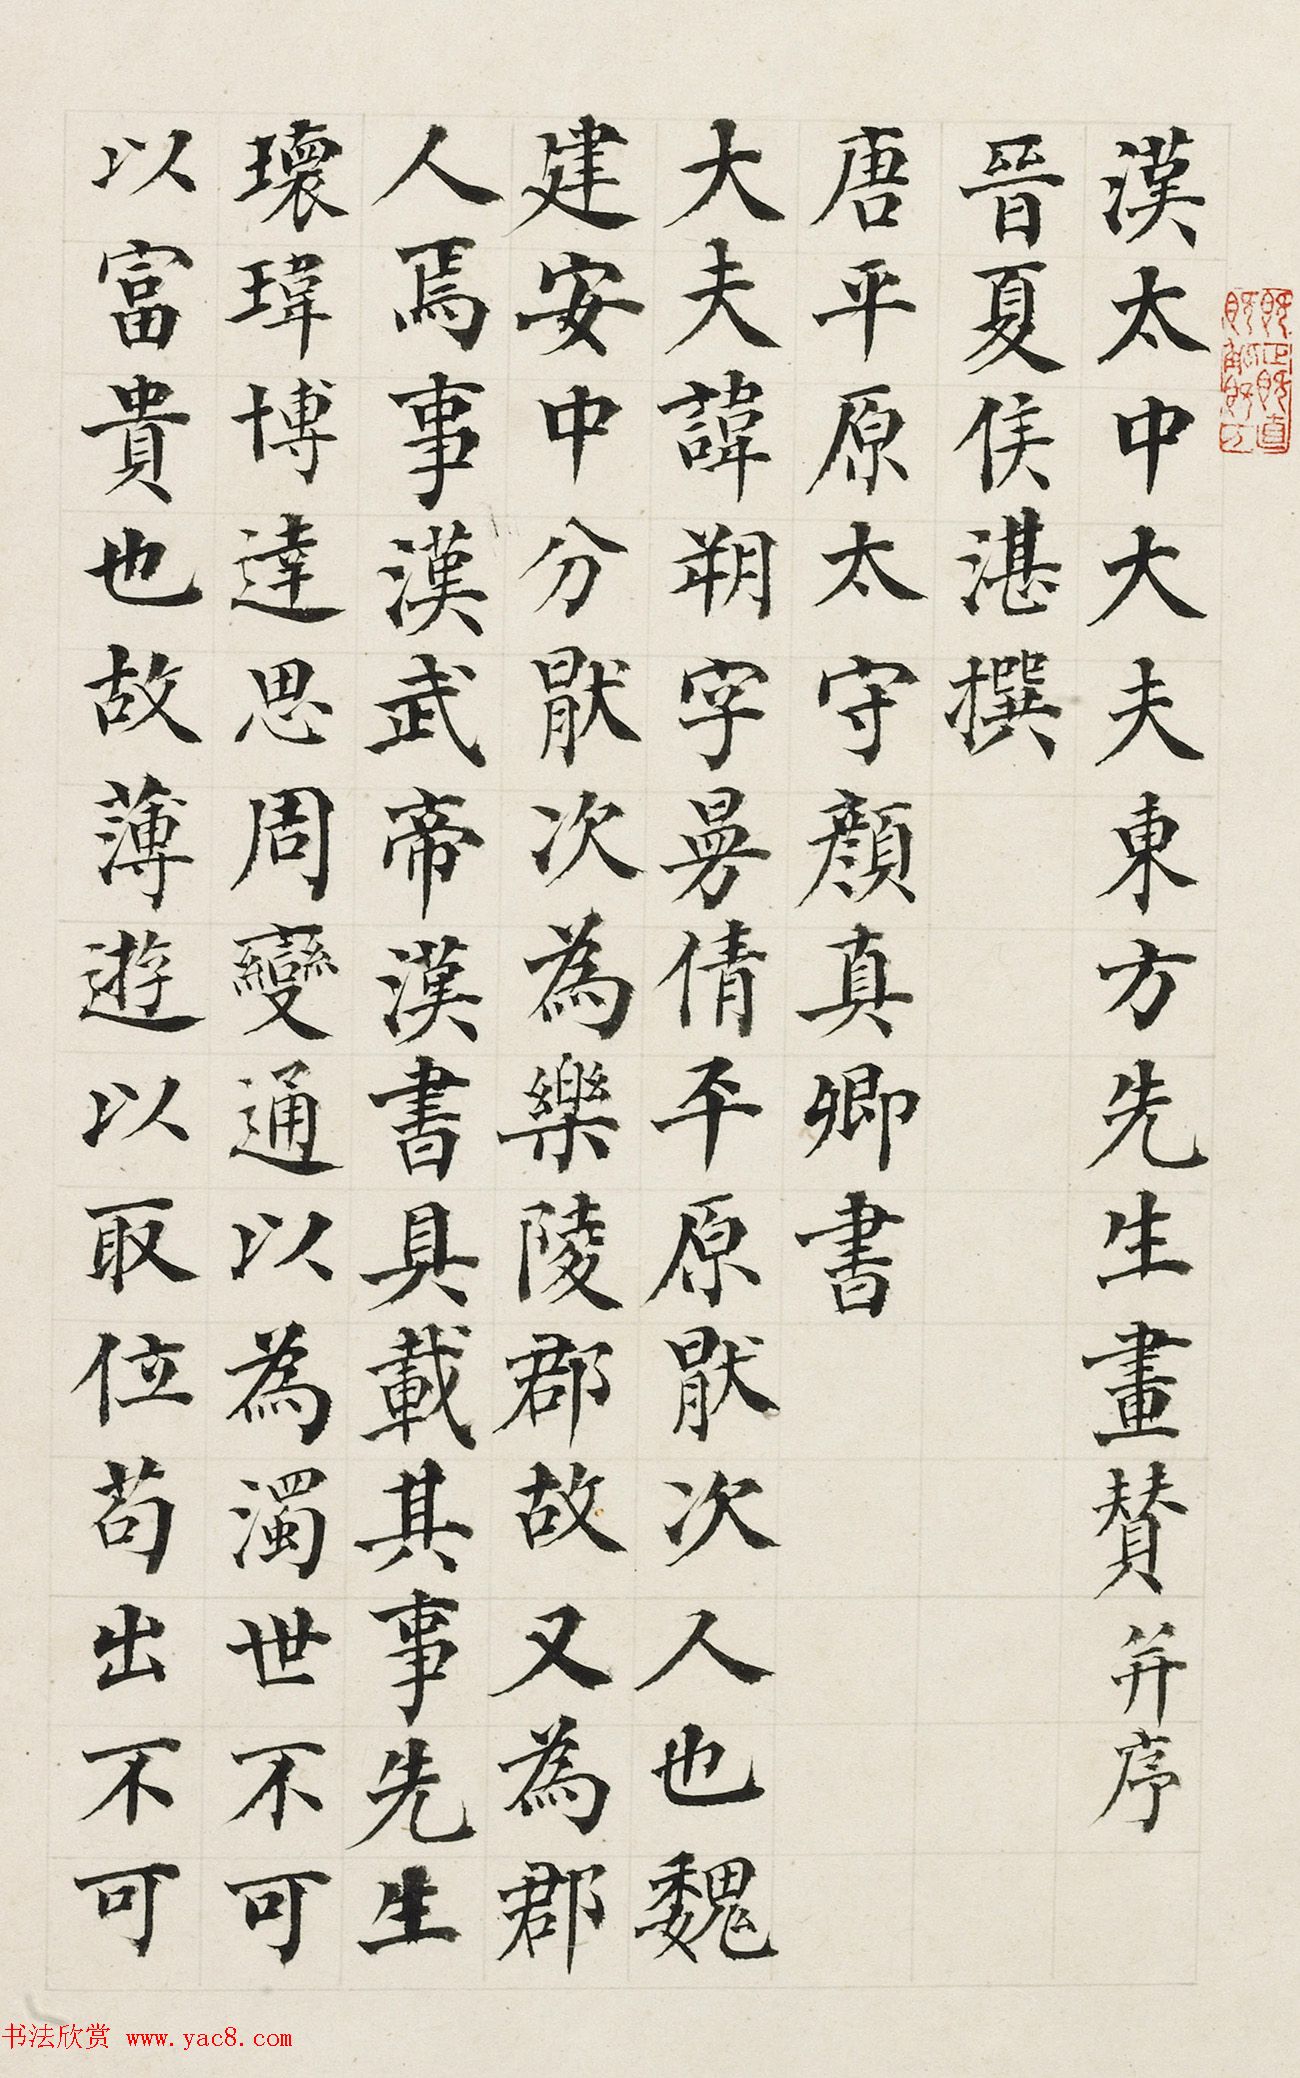 漢太中大夫東方先生畫賛并序
晉夏侯湛撰
唐平原太守顏真卿書
大夫諱朔字曼倩平原厭次人也魏
建安中分厭次為樂陵郡故又為郡
人焉事漢武帝漢書具載其事先生
瓌瑋博達思周變通以為濁世不可
以富貴也故薄遊以取位苟出不可
书法欣赏 www.yac8.com